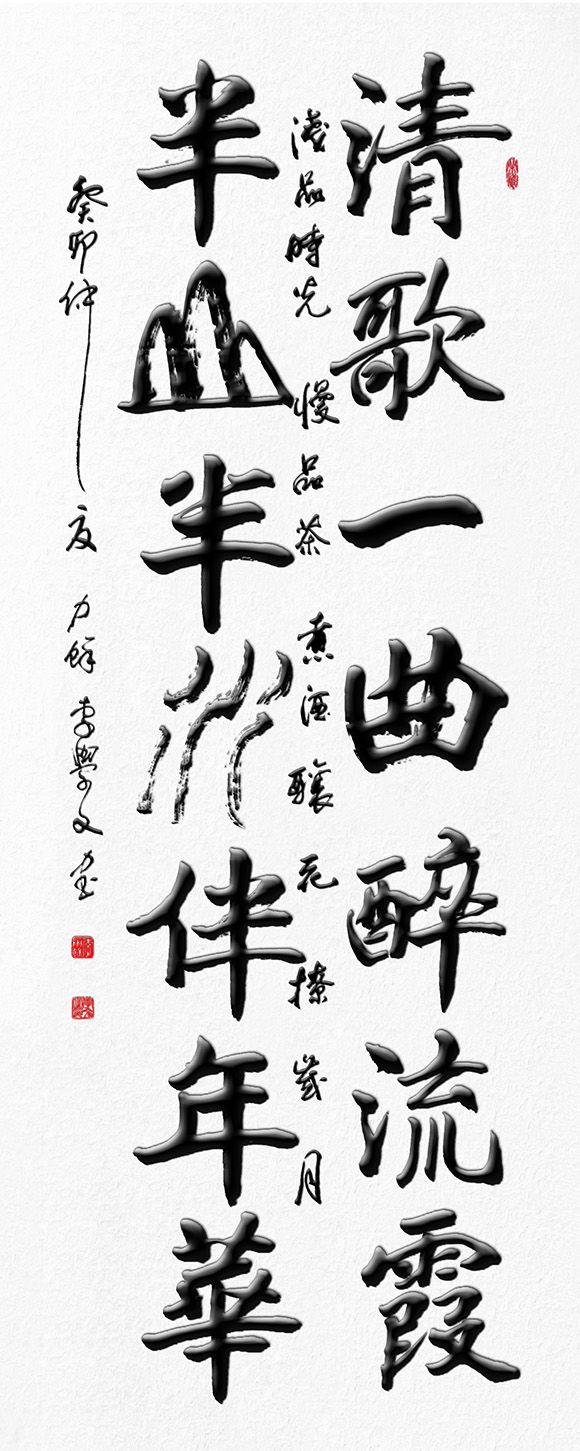 清歌一曲醉流霞
淺品時光 慢品茶 煮酒釀花撩歲月
半山半水伴年華
癸卯仲夏 李學文